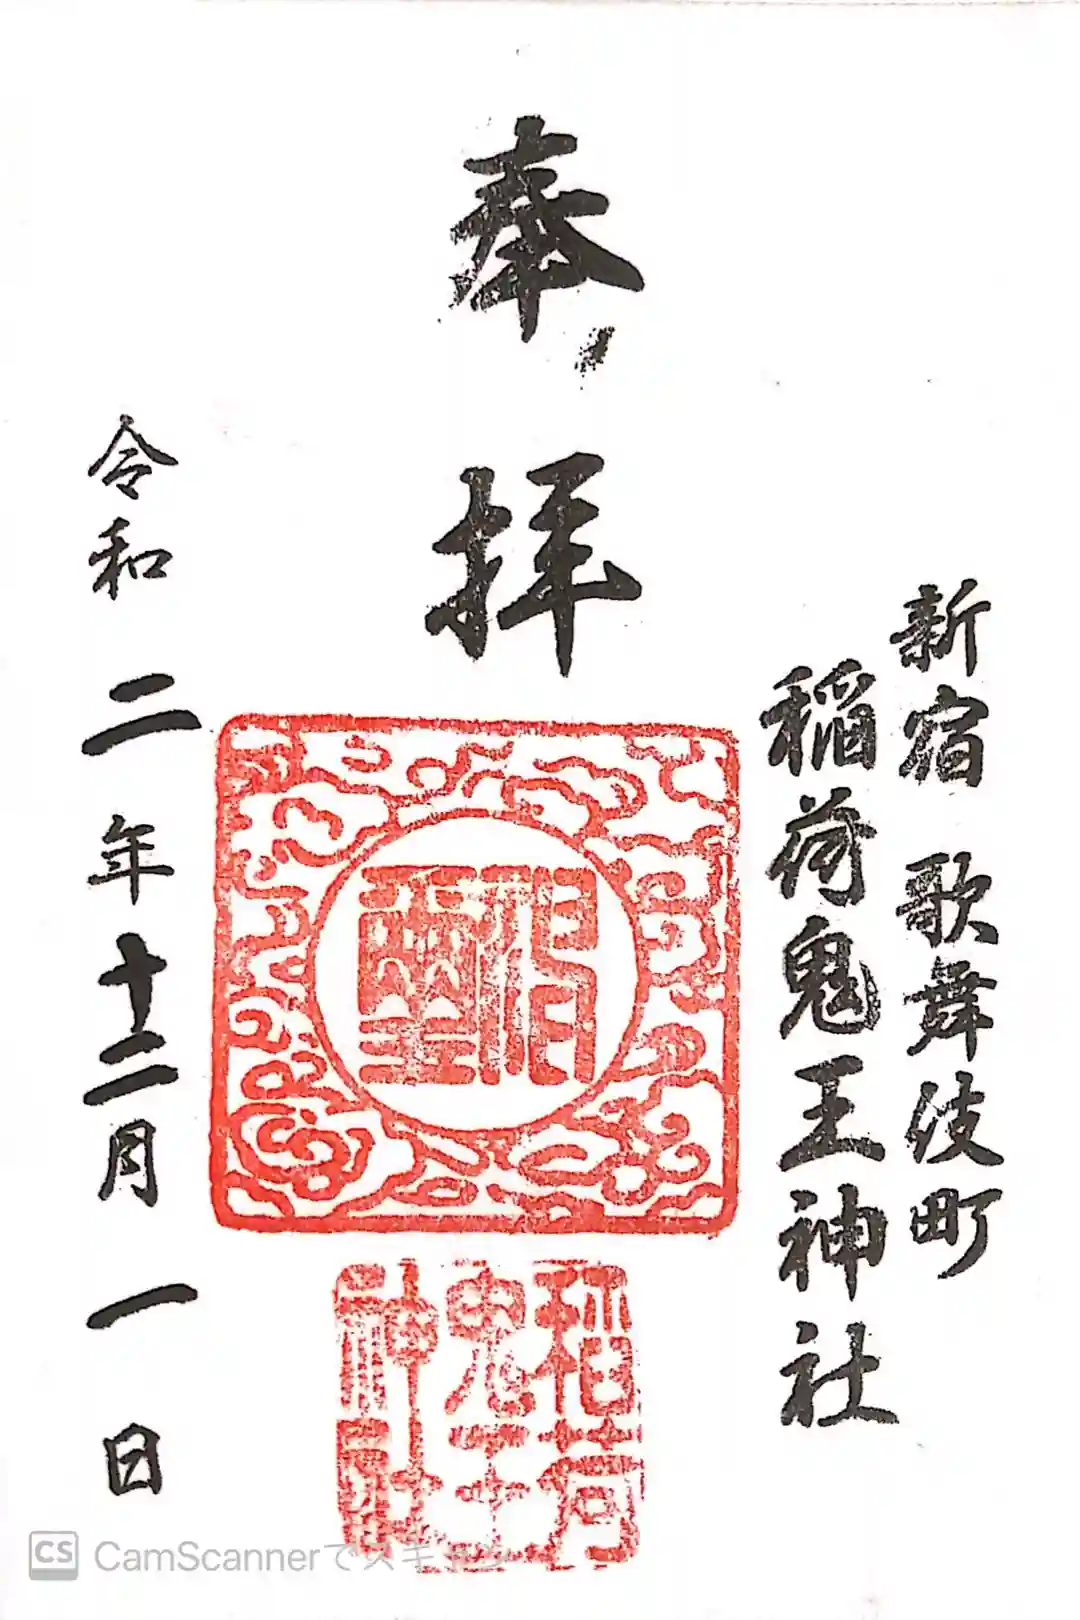 新宿 歌舞伎町
稲荷鬼王神社
奉拝
稲荷
鬼王
神社
令和二年十二月一日
CS CamScannerでスキャン